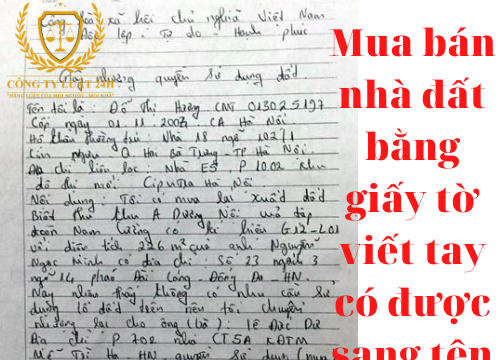 Cộng hòa xã hội chủ nghĩa Việt Nam
Độc lập - Tự do - Hạnh phúc
CÔNG TY LUẬT 24H
Giấy nhượng quyền sử dụng đất
Tên tôi là: Đỗ Thị Hương CMT 013025197
Cấp ngày 01.11.2007 CA Hà Nội
Hộ khẩu thường trú: Nhà 18 ngõ 102/1
Q Hai Bà Trưng - TP Hà Nội
Địa chỉ liên lạc: Nhà E5, P 1002 khu
đô thị mới Ciputra Hà Nội.
Nội dung: Tôi có mua lại xuất đất
Biệt thự khu A Dương Nội của tập
đoàn Nam Cường có kí hiệu G12-L01
với diện tích 226 m² của anh Nguyễn
Ngọc Minh có địa chỉ: Số 23 ngách 3
ngõ 14 phố Đống Đa - HN
Nay nhận thấy không có nhu cầu sử
dụng lô đất trên nên tôi chuyển
nhượng lại cho ông (bà): Lê Đắc Dư
Địa chỉ P 702 nhà CT5A KĐTM
Mễ Trì Hạ HN quyền sử dụng (mua
Mua bán
nhà đất
bằng
giấy tờ
viết tay
có được
sang tên